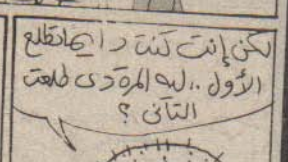 لكن إنت كنت دايما تطلع
الأول .. ليه المرة دى طلعت
التانى ؟